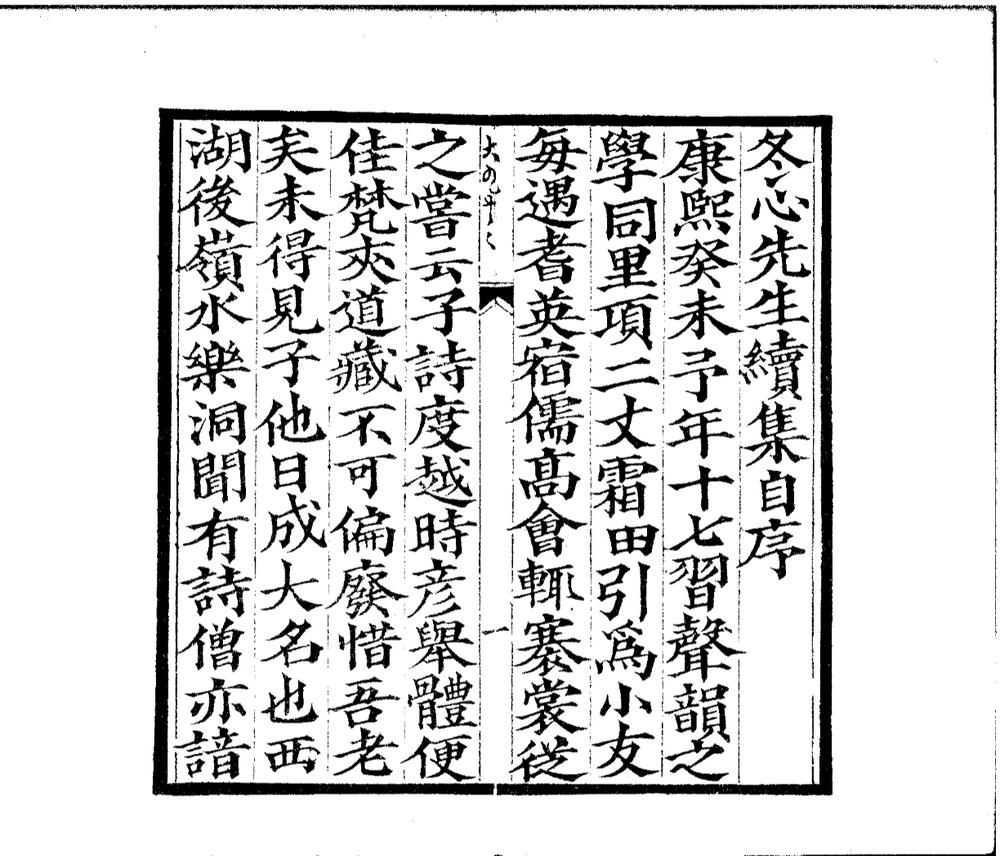 冬心先生續集自序
康熙癸未予年十七習聲韻之
學同里項二丈霜田引爲小友
每遇耆英宿儒高會輒褰裳從
之嘗云子詩度越時彦舉體便
佳梵夾道藏不可偏廢惜吾老
矣未得見子他日成大名也西
湖後嶺水樂洞聞有詩僧亦諳
一